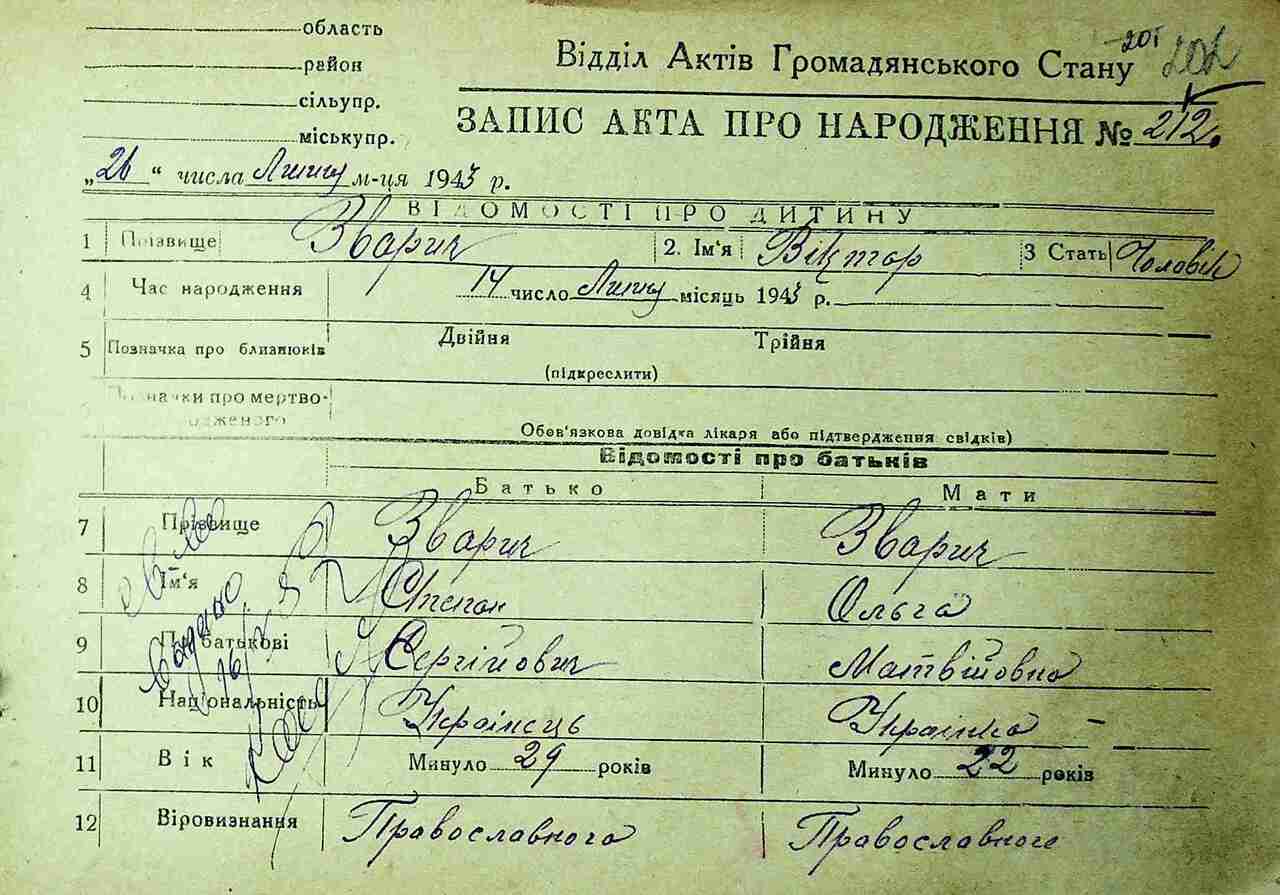 область
район
сільупр.
міськупр.
201
202
Відділ Актів Громадянського Стану
ЗАПИС АКТА ПРО НАРОДЖЕННЯ № 212.
„26“ числа Липня м-ця 1943 р.
ВІДОМОСТІ ПРО ДИТИНУ
1 Прізвище Зварич 2. Ім'я Віктор 3 Стать Чоловік
4 Час народження 14 число Липня місяць 1943 р.
5 Позначка про близнюків Двійня Трійня
(підкреслити)
Позначки про мертво-
родженого
Обов'язкова довідка лікаря або підтвердження свідків)
Відомості про батьків
Батько Мати
7 Прізвище Зварич Зварич
8 Ім'я Степан Ольга
9 По батькові Сергійович Матвійовна
10 Національність Українець Українка
11 Вік Минуло 29 років Минуло 22 років
12 Віровизнання Православного Православного